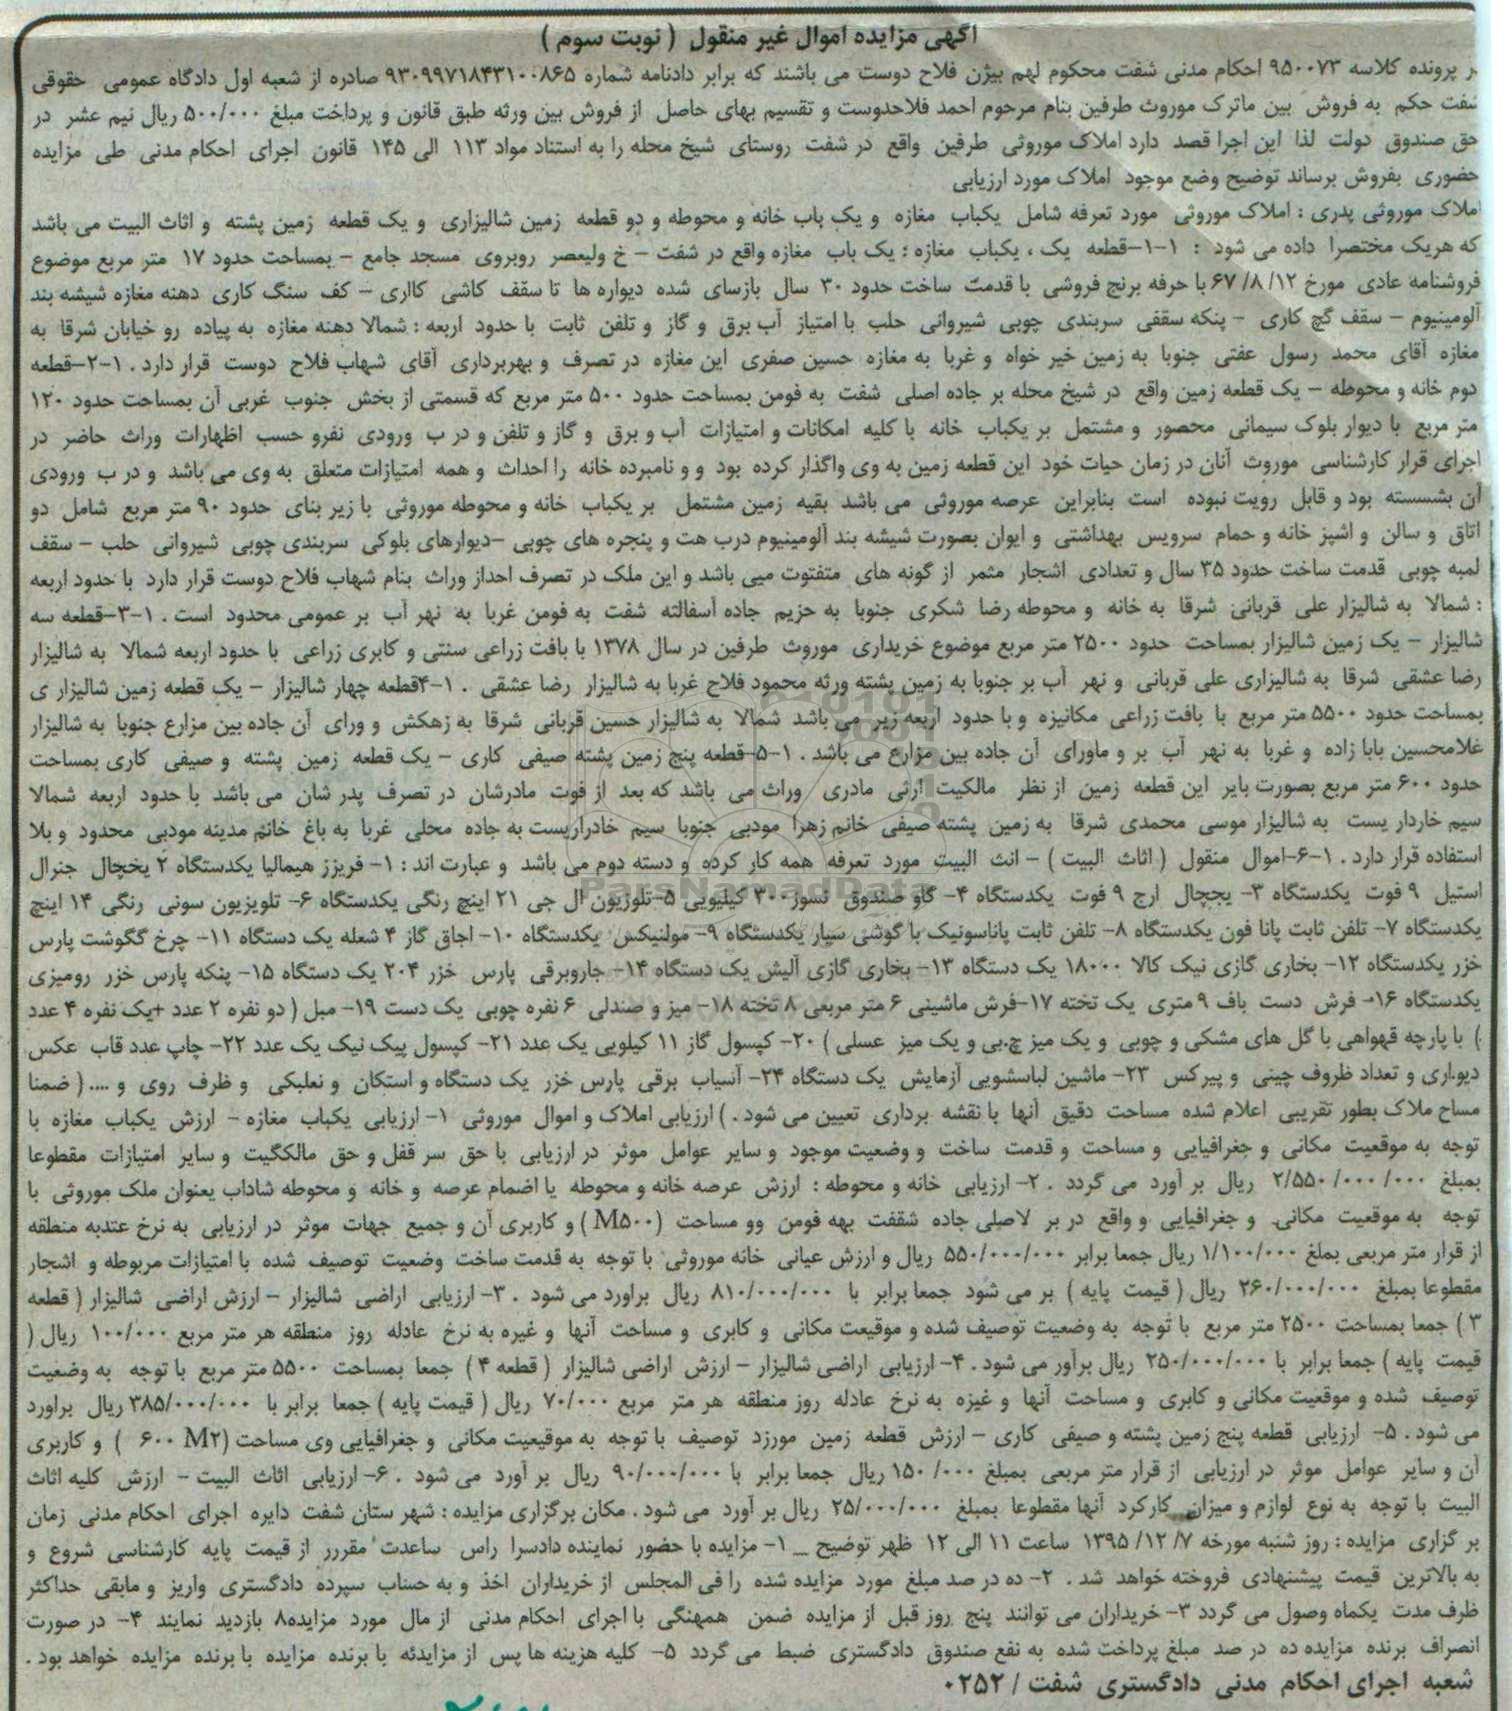 آگهی مزایده اموال غیر منقول ( نوبت سوم )
پرونده کلاسه ۹۵۰۰۷۳ احکام مدنی شفت محکوم لهم بیژن فلاح دوست می باشند که برابر دادنامه شماره ۹۳۰۹۹۷۱۸۴۳۱۰۰۸۶۵ صادره از شعبه اول دادگاه عمومی حقوقی
شفت حکم به فروش بین ماترک موروث طرفین بنام مرحوم احمد فلاحدوست و تقسیم بهای حاصل از فروش بین ورثه طبق قانون و پرداخت مبلغ ۵۰۰/۰۰۰ ریال نیم عشر در
حق صندوق دولت لذا این اجرا قصد دارد املاک موروثی طرفین واقع در شفت روستای شیخ محله را به استناد مواد ۱۱۳ الی ۱۴۵ قانون اجرای احکام مدنی طی مزایده
حضوری بفروش برساند توضیح وضع موجود املاک مورد ارزیابی
املاک موروثی پدری : املاک موروثی مورد تعرفه شامل یکباب مغازه و یک باب خانه و محوطه و دو قطعه زمین شالیزاری و یک قطعه زمین پشته و اثاث البیت می باشد
که هریک مختصرا داده می شود : ۱-۱-قطعه یک ، یکباب مغازه : یک باب مغازه واقع در شفت – خ ولیعصر روبروی مسجد جامع – بمساحت حدود ۱۷ متر مربع موضوع
فروشنامه عادی مورخ ۶۷/۸/۱۲ با حرفه برنج فروشی با قدمت ساخت حدود ۳۰ سال بازسای شده دیواره ها تا سقف کاشی کااری – کف سنگ کاری دهنه مغازه شیشه بند
آلومینیوم – سقف گچ کاری – پنکه سقفی سربندی چوبی شیروانی حلب با امتیاز آب برق و گاز و تلفن ثابت با حدود اربعه : شمالا دهنه مغازه به پیاده رو خیابان شرقا به
مغازه آقای محمد رسول عفتی جنوبا به زمین خیر خواه و غربا به مغازه حسین صفری این مغازه در تصرف و بهربرداری آقای شهاب فلاح دوست قرار دارد . ۱-۲-قطعه
دوم خانه و محوطه – یک قطعه زمین واقع در شیخ محله بر جاده اصلی شفت به فومن بمساحت حدود ۵۰۰ متر مربع که قسمتی از بخش جنوب غربی آن بمساحت حدود ۱۲۰
متر مربع با دیوار بلوک سیمانی محصور و مشتمل بر یکباب خانه با کلیه امکانات و امتیازات آب و برق و گاز و تلفن و در ب ورودی نفرو حسب اظهارات وراث حاضر در
اجرای قرار کارشناسی موروث آنان در زمان حیات خود این قطعه زمین به وی واگذار کرده بود و و نامبرده خانه را احداث و همه امتیازات متعلق به وی می باشد و در ب ورودی
آن بشسسته بود و قابل رویت نبوده است بنابراین عرصه موروثی می باشد بقیه زمین مشتمل بر یکباب خانه و محوطه موروثی با زیر بنای حدود ۹۰ متر مربع شامل دو
اتاق و سالن و اشپز خانه و حمام سرویس بهداشتی و ایوان بصورت شیشه بند آلومینیوم درب هت و پنجره های چوبی –دیوارهای بلوکی سربندی چوبی شیروانی حلب – سقف
لمبه چوبی قدمت ساخت حدود ۳۵ سال و تعدادی اشجار مثمر از گونه های متفتوت میی باشد و این ملک در تصرف احداز وراث بنام شهاب فلاح دوست قرار دارد با حدود اربعه
: شمالا به شالیزار علی قربانی شرقا به خانه و محوطه رضا شکری جنوبا به حزیم جاده آسفالته شفت به فومن غربا به نهر آب بر عمومی محدود است . ۱-۳-قطعه سه
شالیزار – یک زمین شالیزار بمساحت حدود ۲۵۰۰ متر مربع موضوع خریداری موروث طرفین در سال ۱۳۷۸ با بافت زراعی سنتی و کابری زراعی با حدود اربعه شمالا به شالیزار
رضا عشقی شرقا به شالیزاری علی قربانی و نهر آب بر جنوبا به زمین پشته ورثه محمود فلاح غربا به شالیزار رضا عشقی . ۱-۴قطعه چهار شالیزار – یک قطعه زمین شالیزار ی
بمساحت حدود ۵۵۰۰ متر مربع با بافت زراعی مکانیزه و با حدود اربعه زیر می باشد شمالا به شالیزار حسین قربانی شرقا به زهکش و ورای آن جاده بین مزارع جنوبا به شالیزار
غلامحسین بابا زاده و غربا به نهر آب بر و ماورای آن جاده بین مزارع می باشد . ۱-۵-قطعه پنج زمین پشته صیفی کاری – یک قطعه زمین پشته و صیفی کاری بمساحت
حدود ۶۰۰ متر مربع بصورت بایر این قطعه زمین از نظر مالکیت ارثی مادری وراث می باشد که بعد از فوت مادرشان در تصرف پدر شان می باشد با حدود اربعه شمالا
سیم خاردار یست به شالیزار موسی محمدی شرقا به زمین پشته صیفی خانم زهرا مودبی جنوبا سیم خادراریست به جاده محلی غربا به باغ خانم مدینه مودبی محدود و بلا
استفاده قرار دارد . ۱-۶-اموال منقول ( اثاث البیت ) – انث البیت مورد تعرفه همه کار کرده و دسته دوم می باشد و عبارت اند : ۱- فریزز هیمالیا یکدستگاه ۲ یخچال جنرال
استیل ۹ فوت یکدستگاه ۳- یچچال ارج ۹ فوت یکدستگاه ۴- گاو صندوق نسوز۳۰۰ کیلیویی ۵-تلوزیون ال جی ۲۱ اینچ رنگی یکدستگاه ۶- تلویزیون سونی رنگی ۱۴ اینچ
یکدستگاه ۷- تلفن ثابت پانا فون یکدستگاه ۸- تلفن ثابت پاناسونیک با گوشی سیار یکدستگاه ۹- مولنیکس یکدستگاه ۱۰- اجاق گاز ۴ شعله یک دستگاه ۱۱- چرخ گگوشت پارس
خزر یکدستگاه ۱۲- بخاری گازی نیک کالا ۱۸۰۰۰ یک دستگاه ۱۳- بخاری گازی آلیش یک دستگاه ۱۴- جاروبرقی پارس خزر ۲۰۴ یک دستگاه ۱۵- پنکه پارس خزر رومیزی
یکدستگاه ۱۶- فرش دست باف ۹ متری یک تخته ۱۷-فرش ماشینی ۶ متر مربعی ۸ تخته ۱۸- میز و صندلی ۶ نفره چوبی یک دست ۱۹- مبل ( دو نفره ۲ عدد +یک نفره ۴ عدد
) با پارچه قهواهی با گل های مشکی و چوبی و یک میز چ.بی و یک میز عسلی ) ۲۰- کپسول گاز ۱۱ کیلویی یک عدد ۲۱- کپسول پیک نیک یک عدد ۲۲- چاپ عدد قاب عکس
دیو.اری و تعداد ظروف چینی و پیرکس ۲۳- ماشین لباسشویی آزمایش یک دستگاه ۲۴- آسیاب برقی پارس خزر یک دستگاه و استکان و نعلبکی و ظرف روی و .... ( ضمنا
مساح ملاک بطور تقریبی اعلام شده مساحت دقیق آنها با نقشه برداری تعیین می شود . ) ارزیابی املاک و اموال موروثی ۱- ارزیابی یکباب مغازه – ارزش یکباب مغازه با
توجه به موقعیت مکانی و جغرافیایی و مساحت و قدمت ساخت و وضعیت موجود و سایر عوامل موثر در ارزیابی با حق سر قفل و حق مالکگیت و سایر امتیازات مقطوعا
بمبلغ ۲/۵۵۰/۰۰۰/۰۰۰ ریال بر آورد می گردد . ۲- ارزیابی خانه و محوطه : ارزش عرصه خانه و محوطه یا اضمام عرصه و خانه و محوطه شاداب یعنوان ملک موروثی با
توجه به موقعیت مکانی و جغرافیایی و واقع در بر لاصلی جاده شقفت بهه فومن وو مساحت (M۵۰۰ ) و کاربری آن و جمیع جهات موثر در ارزیابی به نرخ عتدبه منطقه
از قرار متر مربعی بملغ ۱/۱۰۰/۰۰۰ ریال جمعا برابر ۵۵۰/۰۰۰/۰۰۰ ریال و ارزش عیانی خانه موروثی با توجه به قدمت ساخت وضعیت توصیف شده با امتیازات مربوطه و اشجار
مقطوعا بمبلغ ۲۶۰/۰۰۰/۰۰۰ ریال ( قیمت پایه ) بر می شود جمعا برابر با ۸۱۰/۰۰۰/۰۰۰ ریال براورد می شود . ۳- ارزیابی اراضی شالیزار – ارزش اراضی شالیزار ( قطعه
۳ ) جمعا بمساحت ۲۵۰۰ متر مربع با توجه به وضعیت توصیف شده و موقیعت مکانی و کابری و مساحت آنها و غیره به نرخ عادله روز منطقه هر متر مربع ۱۰۰/۰۰۰ ریال (
قیمت پایه ) جمعا برابر با ۲۵۰/۰۰۰/۰۰۰ ریال برآور می شود . ۴- ارزیابی اراضی شالیزار – ارزش اراضی شالیزار ( قطعه ۴ ) جمعا بمساحت ۵۵۰۰ متر مربع با توجه به وضعیت
توصیف شده و موقعیت مکانی و کابری و مساحت آنها و غیزه به نرخ عادله روز منطقه هر متر مربع ۷۰/۰۰۰ ریال ( قیمت پایه ) جمعا برابر با ۳۸۵/۰۰۰/۰۰۰ ریال براورد
می شود . ۵- ارزیابی قطعه پنج زمین پشته و صیفی کاری – ارزش قطعه زمین مورزد توصیف با توجه به موقیعیت مکانی و جغرافیایی وی مساحت (M۲ ۶۰۰ ) و کاربری
آن و سایر عوامل موثر در ارزیابی از قرار متر مربعی بمبلغ ۱۵۰/۰۰۰ ریال جمعا برابر با ۹۰/۰۰۰/۰۰۰ ریال بر آورد می شود . ۶- ارزیابی اثاث البیت – ارزش کلیه اثاث
البیت با توجه به نوع لوازم و میزان کارکرد آنها مقطوعا بمبلغ ۲۵/۰۰۰/۰۰۰ ریال بر آورد می شود . مکان برگزاری مزایده : شهر ستان شفت دایره اجرای احکام مدنی زمان
بر گزاری مزایده : روز شنبه مورخه ۷/ ۱۲/ ۱۳۹۵ ساعت ۱۱ الی ۱۲ ظهر توضیح _ ۱- مزایده با حضور نماینده دادسرا راس ساعدت مقررر از قیمت پایه کارشناسی شروع و
به بالاترین قیمت پیشنهادی فروخته خواهد شد . ۲- ده در صد مبلغ مورد مزایده شده را فی المجلس از خریداران اخذ و به حساب سپرده دادگستری واریز و مابقی حداکثر
ظرف مدت یکماه وصول می گردد ۳- خریداران می توانند پنج روز قبل از مزایده ضمن همهنگی با اجرای احکام مدنی از مال مورد مزایده۸ بازدید نمایند ۴- در صورت
انصراف برنده مزایده ده در صد مبلغ پرداخت شده به نفع صندوق دادگستری ضبط می گردد ۵- کلیه هزینه ها پس از مزایدئه با برنده مزایده با برنده مزایده خواهد بود .
شعبه اجرای احکام مدنی دادگستری شفت / ۰۲۵۲
ParsNamadData